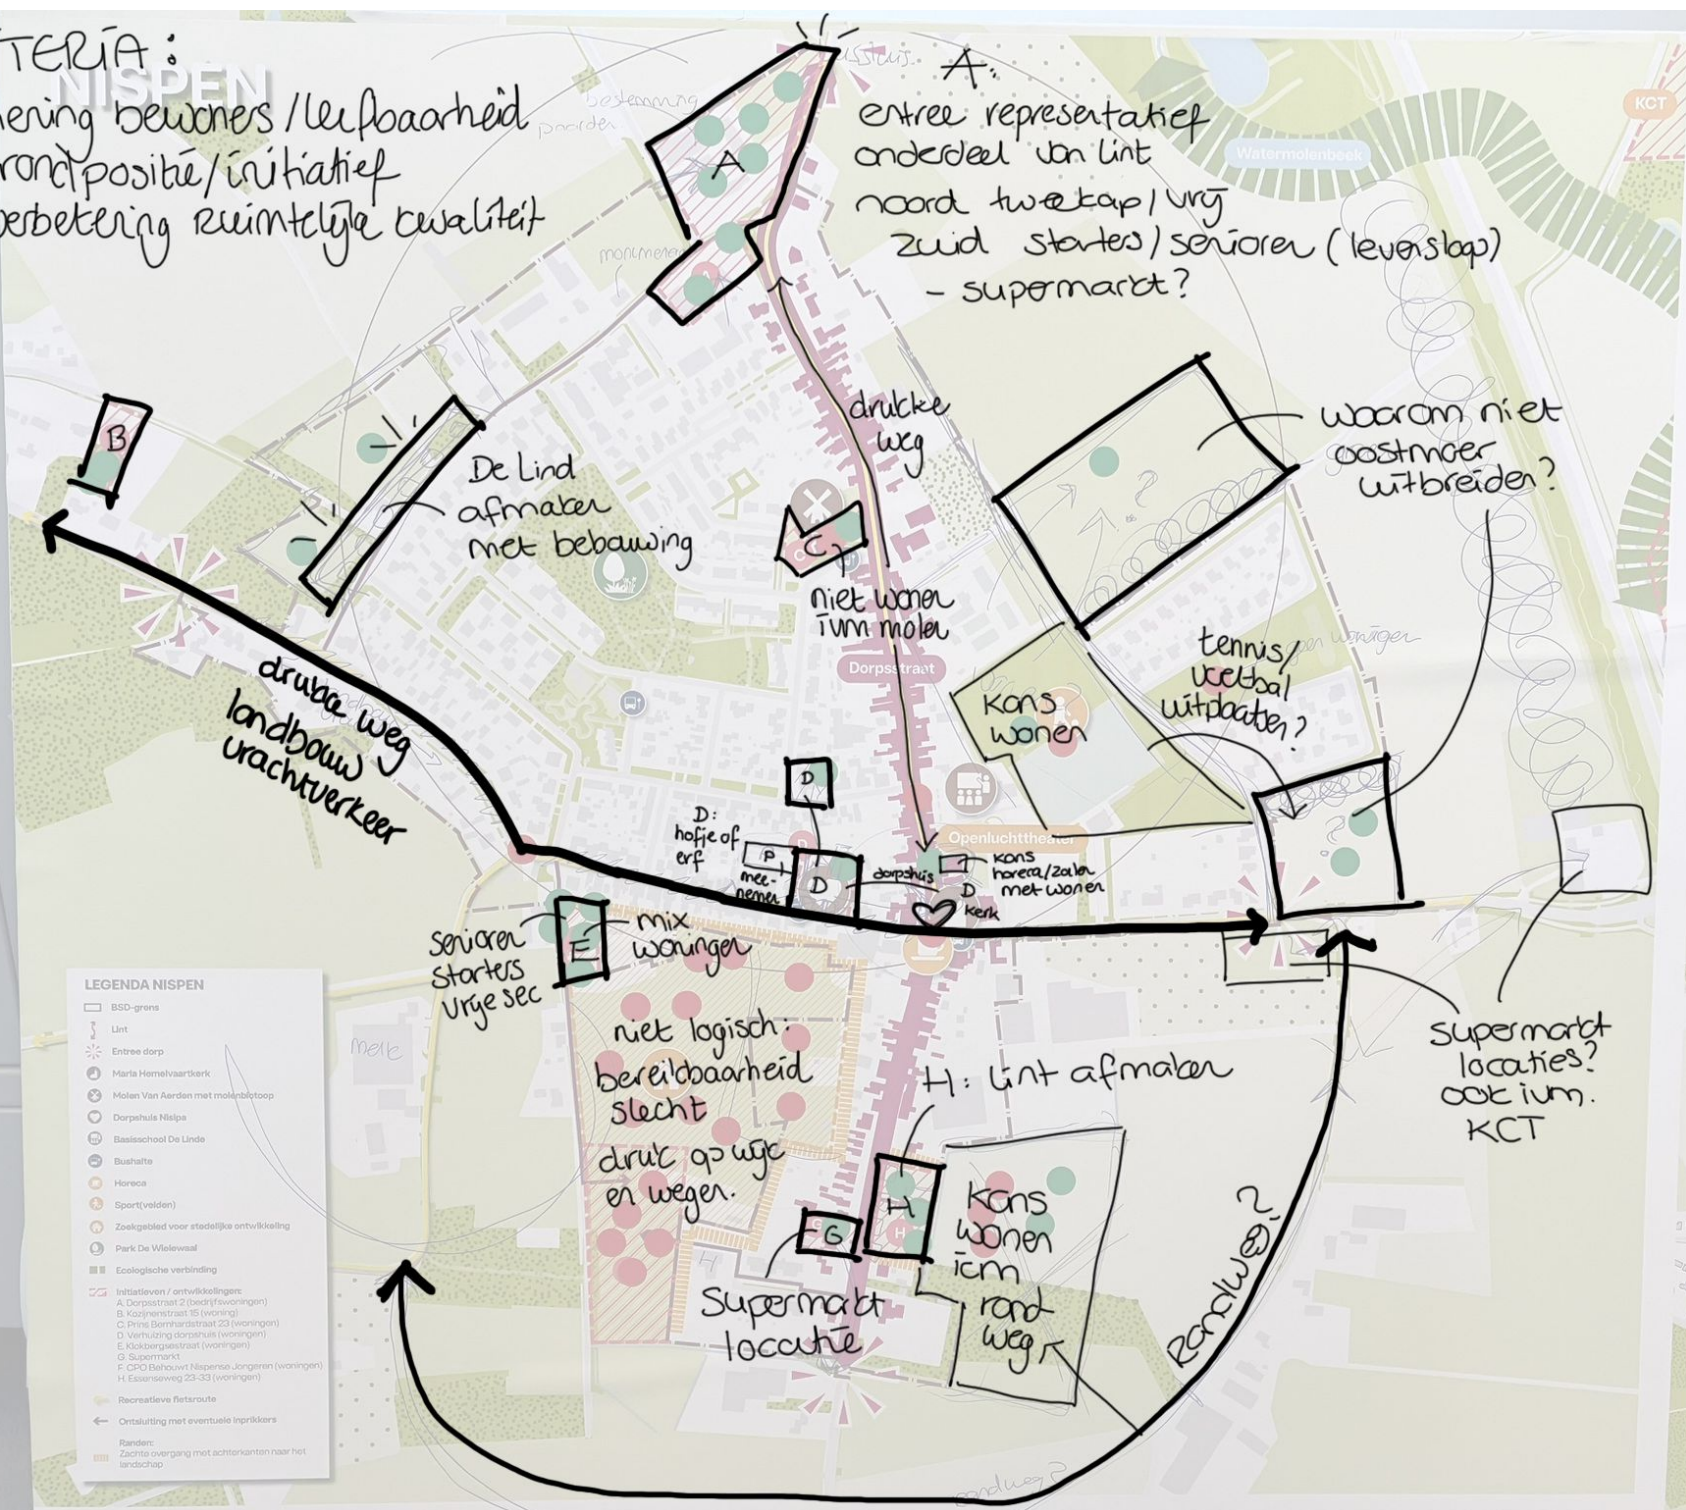 TERIA:
NISPEN
ening bewoners/leefbaarheid
rondpositie/initiatief
verbetering ruimtelijke kwaliteit
bestemming
paarden
A
A:
entree representatief
onderdeel van lint
noord tweekap/vrij
zuid starters/senioren (levensloop)
- supermarkt?
Watermolenbeek
KCT
B
De Lind
afmaken
met bebouwing
drukke
weg
C
niet wonen
ivm molen
Dorpsstraat
waarom niet
oostmoer
uitbreiden?
?
tennis/
voetbal
uitplaatsen?
kans
wonen
Openluchttheater
drukke weg
landbouw
vrachtverkeer
D
D:
hofje of
erf
P
mee-
nemen
D
dorpshuis
kans
horeca/zalen
met wonen
D
kerk
?
senioren
starters
vrije sec
E
mix
woningen
niet logisch:
bereikbaarheid
slecht
druk op wijk
en wegen.
H: lint afmaken
H
H
G
Supermarkt
locatie
kans
wonen
icm
rond
weg
Randweg?
supermarkt
locaties?
ook ivm.
KCT
randweg?
LEGENDA NISPEN
BSD-grens
Lint
Entree dorp
Maria Hemelvaartkerk
Molen Van Aerden met molenbiotoop
Dorpshuis Nisipa
Basisschool De Linde
Bushalte
Horeca
Sport(velden)
Zoekgebied voor stedelijke ontwikkeling
Park De Wielewaal
Ecologische verbinding
Initiatieven / ontwikkelingen:
A. Dorpsstraat 2 (bedrijfswoningen)
B. Kozijnenstraat 15 (woning)
C. Prins Bernhardstraat 23 (woningen)
D. Verhuizing dorpshuis (woningen)
E. Klokbergsestraat (woningen)
G. Supermarkt
F. CPO Behouwt Nispense Jongeren (woningen)
H. Essenseweg 23-33 (woningen)
Recreatieve fietsroute
Ontsluiting met eventuele inprikkers
Randen:
Zachte overgang met achterkanten naar het
landschap